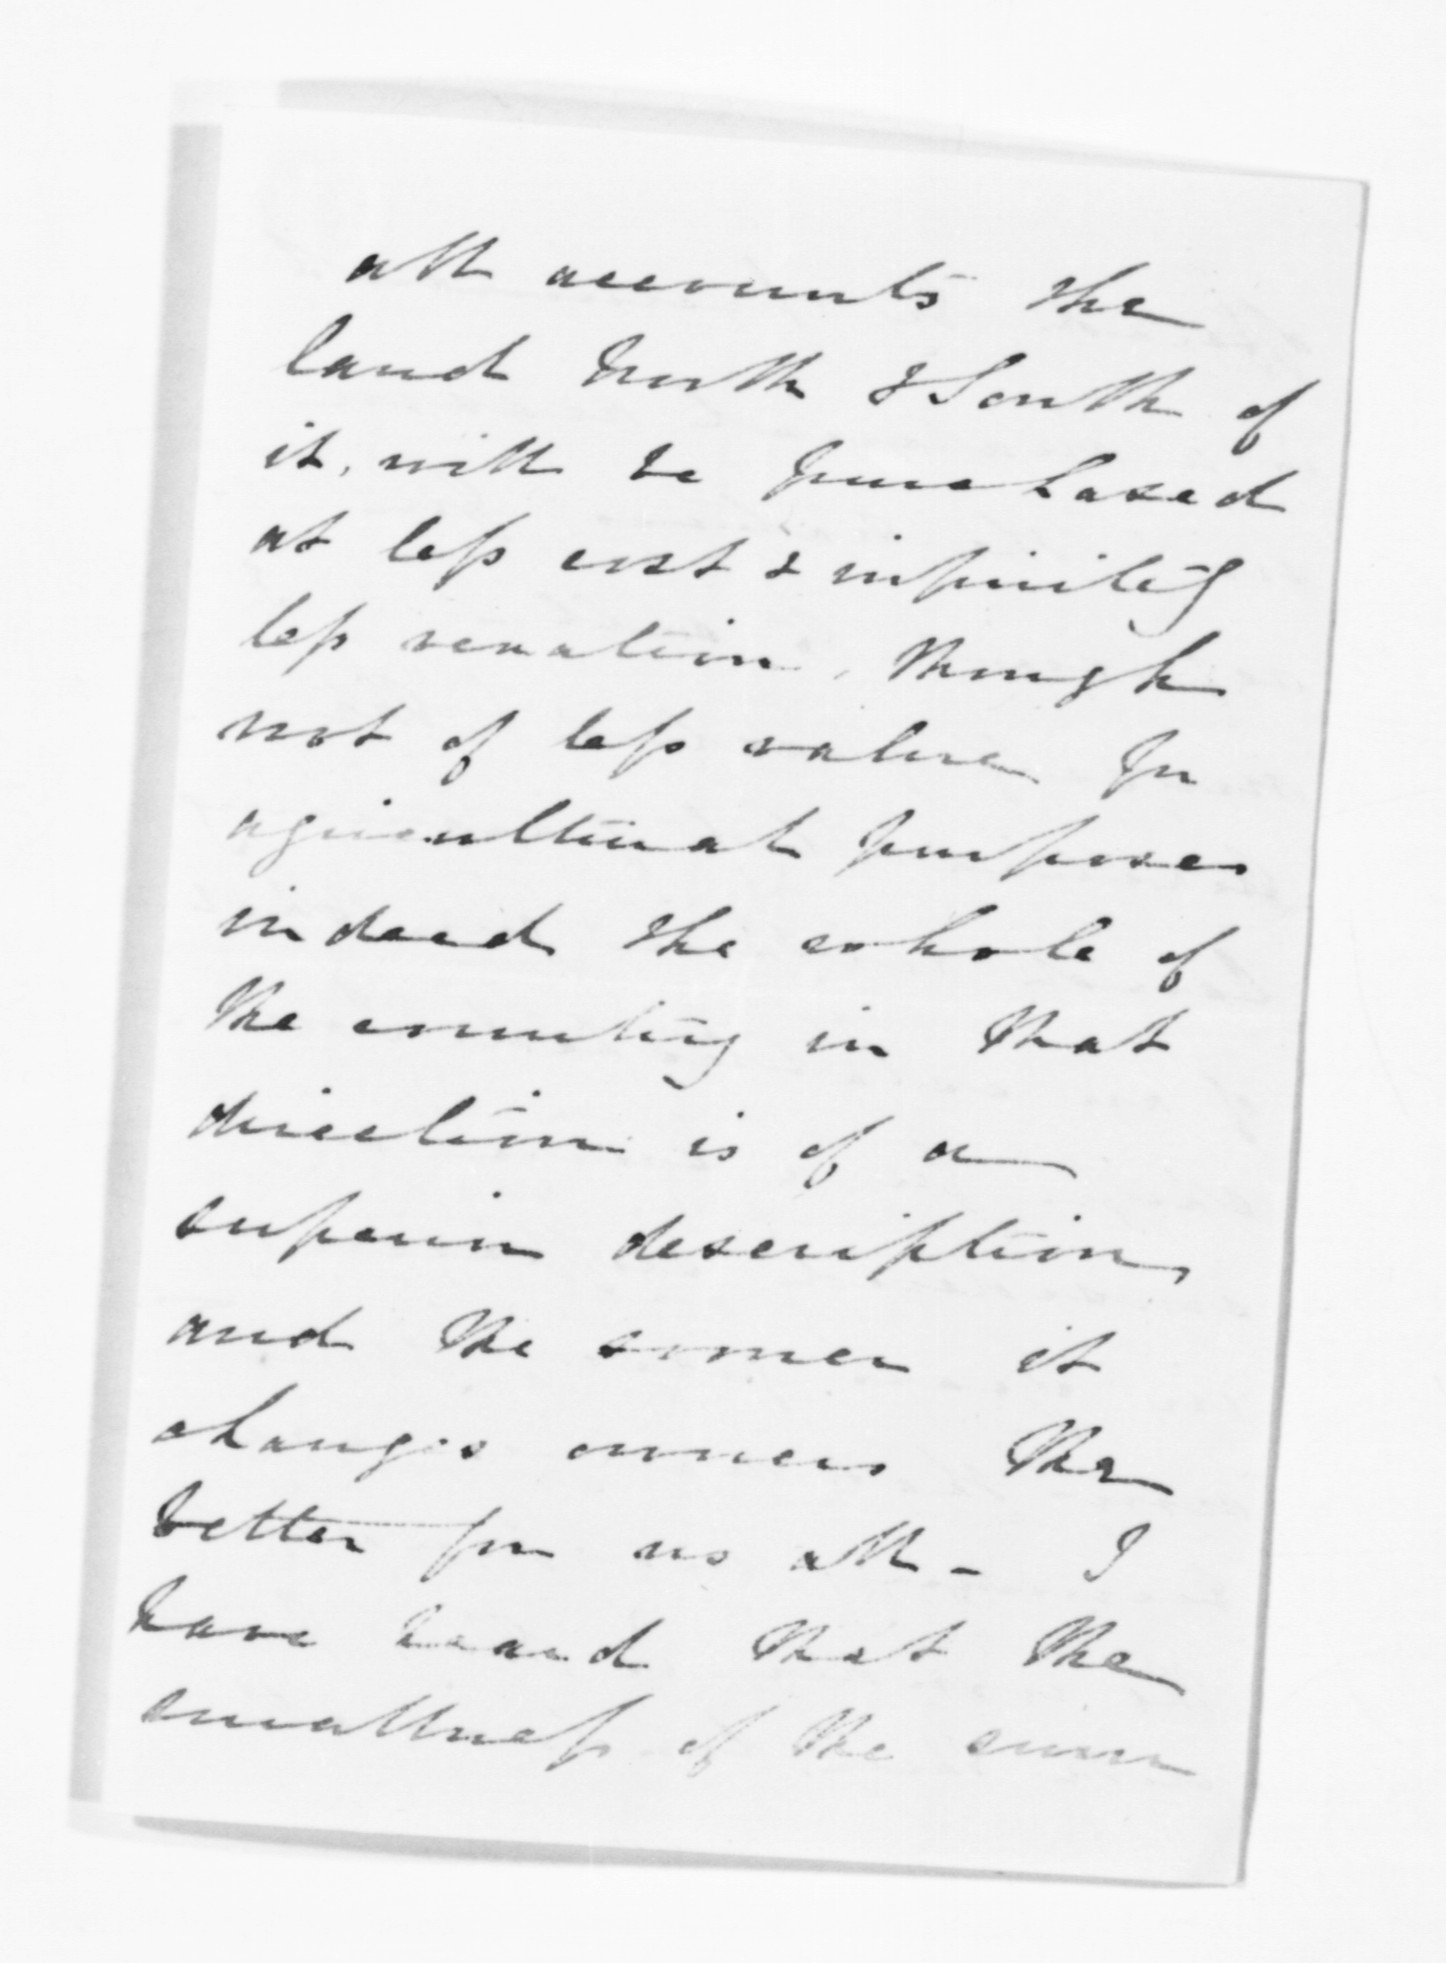 all accounts the
land North & South of
it, will be purchased
at less cost & infinitely
less vexation, though
not of less value for
agricultural purposes
indeed the whole of
the country in that
direction is of a
superior description,
and the sooner it
changes owners the
better for us all - I
have heard that the
smallness of the sum